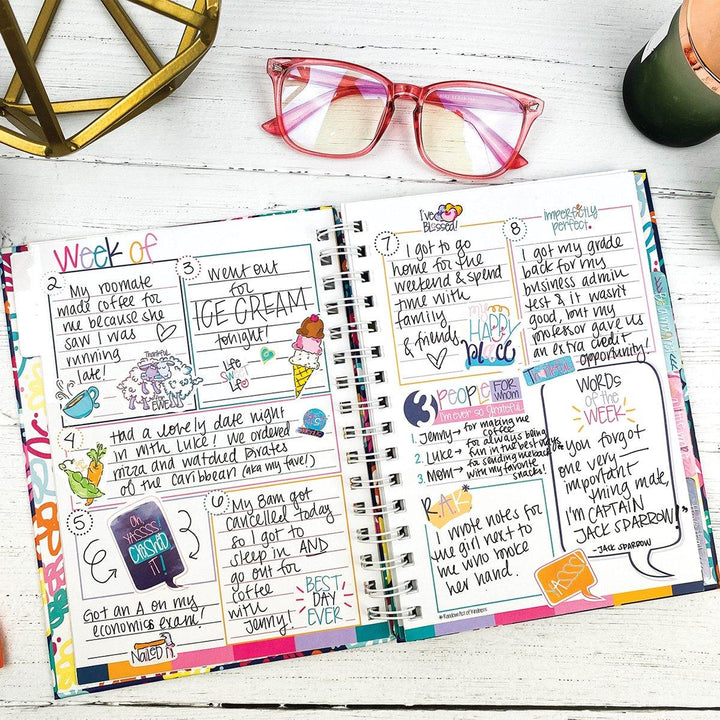 Week of
2
My roomate
made coffee for
me because she
saw I was
running
late!
Thankful
for
EWE
3
Went out
for
ICE CREAM
tonight!
Life
is
Sweet
4
Had a lovely date night
in with Luke! We ordered
pizza and watched Pirates
of the Caribbean (aka my fave!)
5
OH
YASSSS
CRUSHED
IT!
Got an A on my
economics exam!
Nailed it
6
My 8am got
cancelled today
so I got to
sleep in AND
go out for
coffee
with
Jenny!
BEST
DAY
EVER
I'm
Blessed!
7
I got to go
home for the
weekend & spend
time with
family
& friends
my
HAPPY
place
imperfectly
perfect.
8
I got my grade
back for my
business admin
test & it wasn't
good, but my
professor gave us
an extra credit
opportunity!
Thankful
3 PEOPLE FOR
WHOM
I'm ever so Grateful
1. Jenny → for making me
coffee
2. Luke → for always being
fun in the best ways
3. Mom → for sending me back
with my favorite
snacks!
R.A.K.
I wrote notes for
the girl next to
me who broke
her hand.
YASSS
#Random Act of Kindness
WORDS
of the
WEEK
"You forgot
one very
important
thing mate,
I'm CAPTAIN
JACK SPARROW!"
- JACK SPARROW